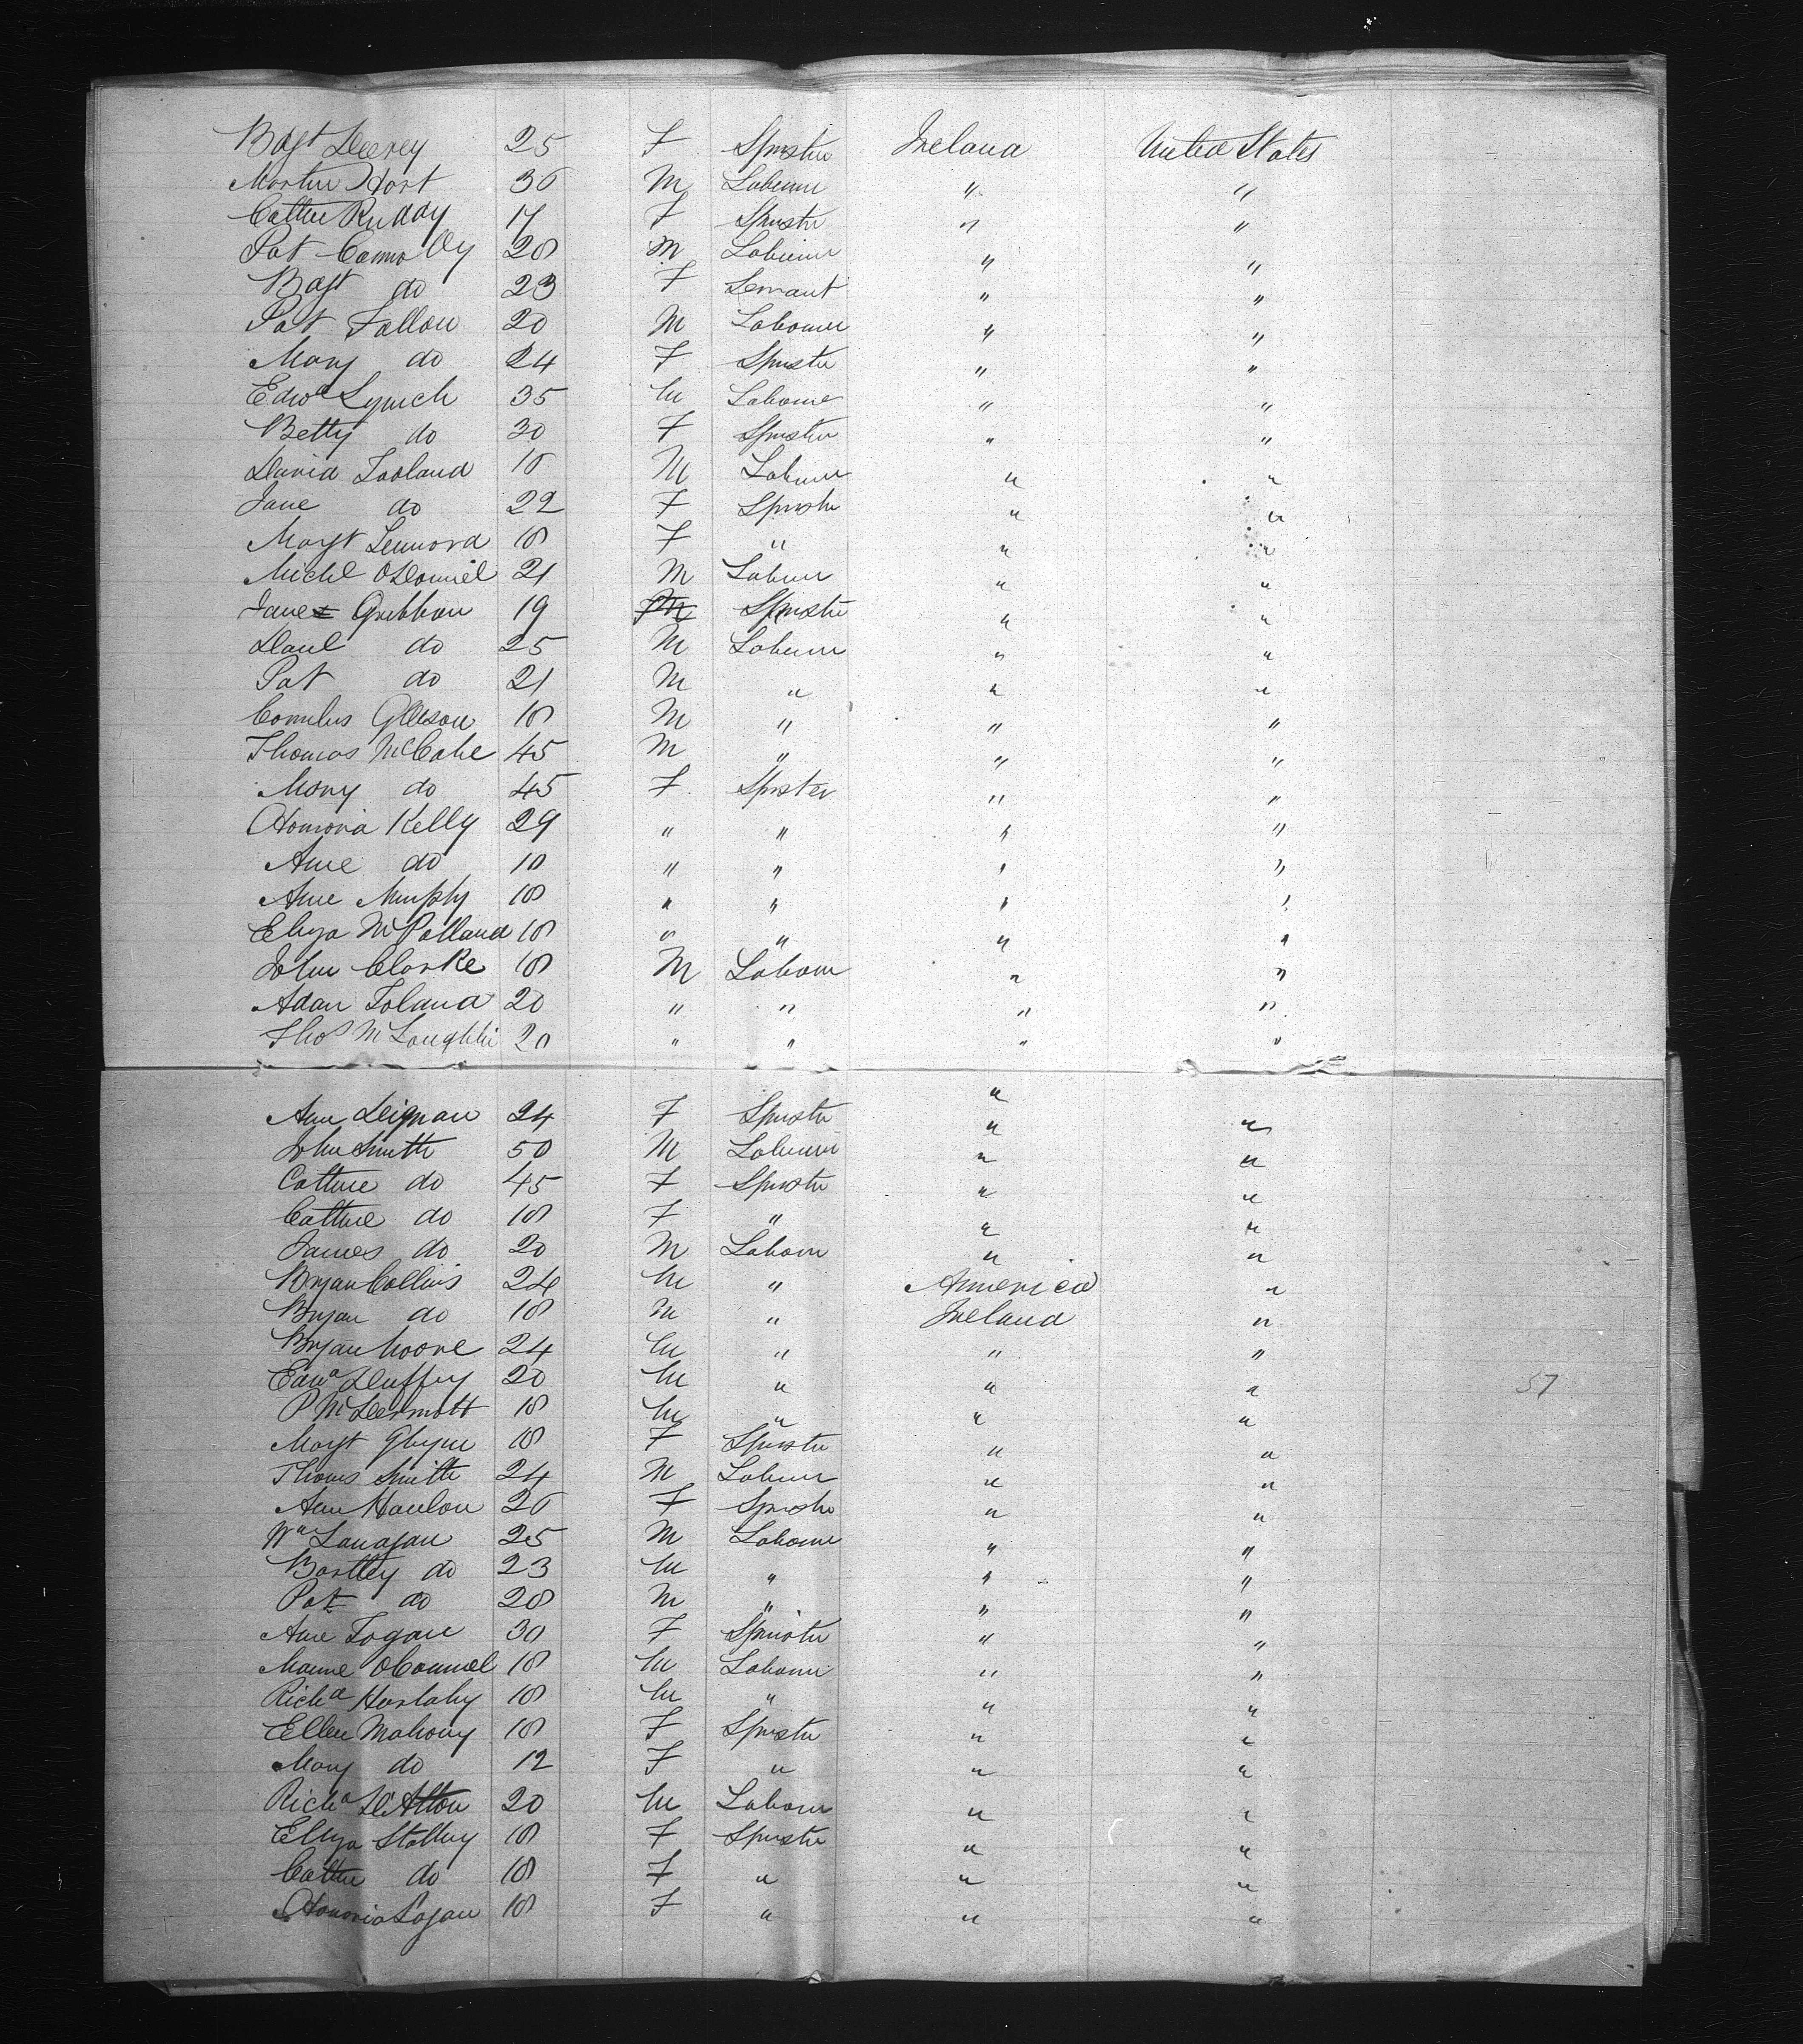 Bdgt Deerey 25 F Spinster Ireland United States
Martin Hart 36 M Labourer " "
Cathn Ruddy 17 F Spinster " "
Pat Connolly 28 M Labourer " "
Bdgt do 23 F Servant " "
Pat Fallon 20 M Labourer " "
Mary do 24 F Spinster " "
Edwd Lynch 35 M Labourer " "
Betty do 30 F Spinster " "
David Tooland 18 M Labourer " "
Jane do 22 F Spinster " "
Margt Lennord 18 F " " "
Michl O'Donniel 21 M Labourer " "
Jane Gribbon 19 Spinster " "
Danl do 25 M Labourer " "
Pat do 21 M " " "
Cornelius Gleeson 18 M " " "
Thomas McCabe 45 M " " "
Mary do 45 F Spinster " "
Honoria Kelly 29 " " " "
Anne do 18 " " " "
Anne Murphy 18 " " " "
Eliza McPolland 18 " " " "
John Clarke 18 M Labour " "
Adam Toland 20 " " " "
Thos McLoughlin 20 " " " "
"
Ann Deignan 24 F Spinster " "
John Smith 50 M Labourer " "
Cathne do 45 F Spinster " "
Cathne do 18 F " " "
James do 20 M Labour " "
Bryan Collins 24 M " America "
Bryan do 18 M " Ireland "
Bryan Moore 24 M " " "
Edwd Duffy 20 M " " " 57
P McDermott 18 M " " "
Margt Glynn 18 F Spinster " "
Thoms Smith 24 M Labourer " "
Ann Hanlon 26 F Spinster " "
Wm Lanagan 25 M Labourer " "
Bartley do 23 M " " "
Pat do 28 M " " "
Anne Fogan 30 F Spinster " "
Maurice O'Connel 18 M Labourer " "
Richd Hurlahy 18 M " " "
Ellen Mahony 18 F Spinster " "
Mary do 12 F " " "
Richd D'Alton 20 M Labour " "
Eliza Slattery 18 F Spinster " "
Cathn do 18 F " " "
Honoria Logan 18 F " " "